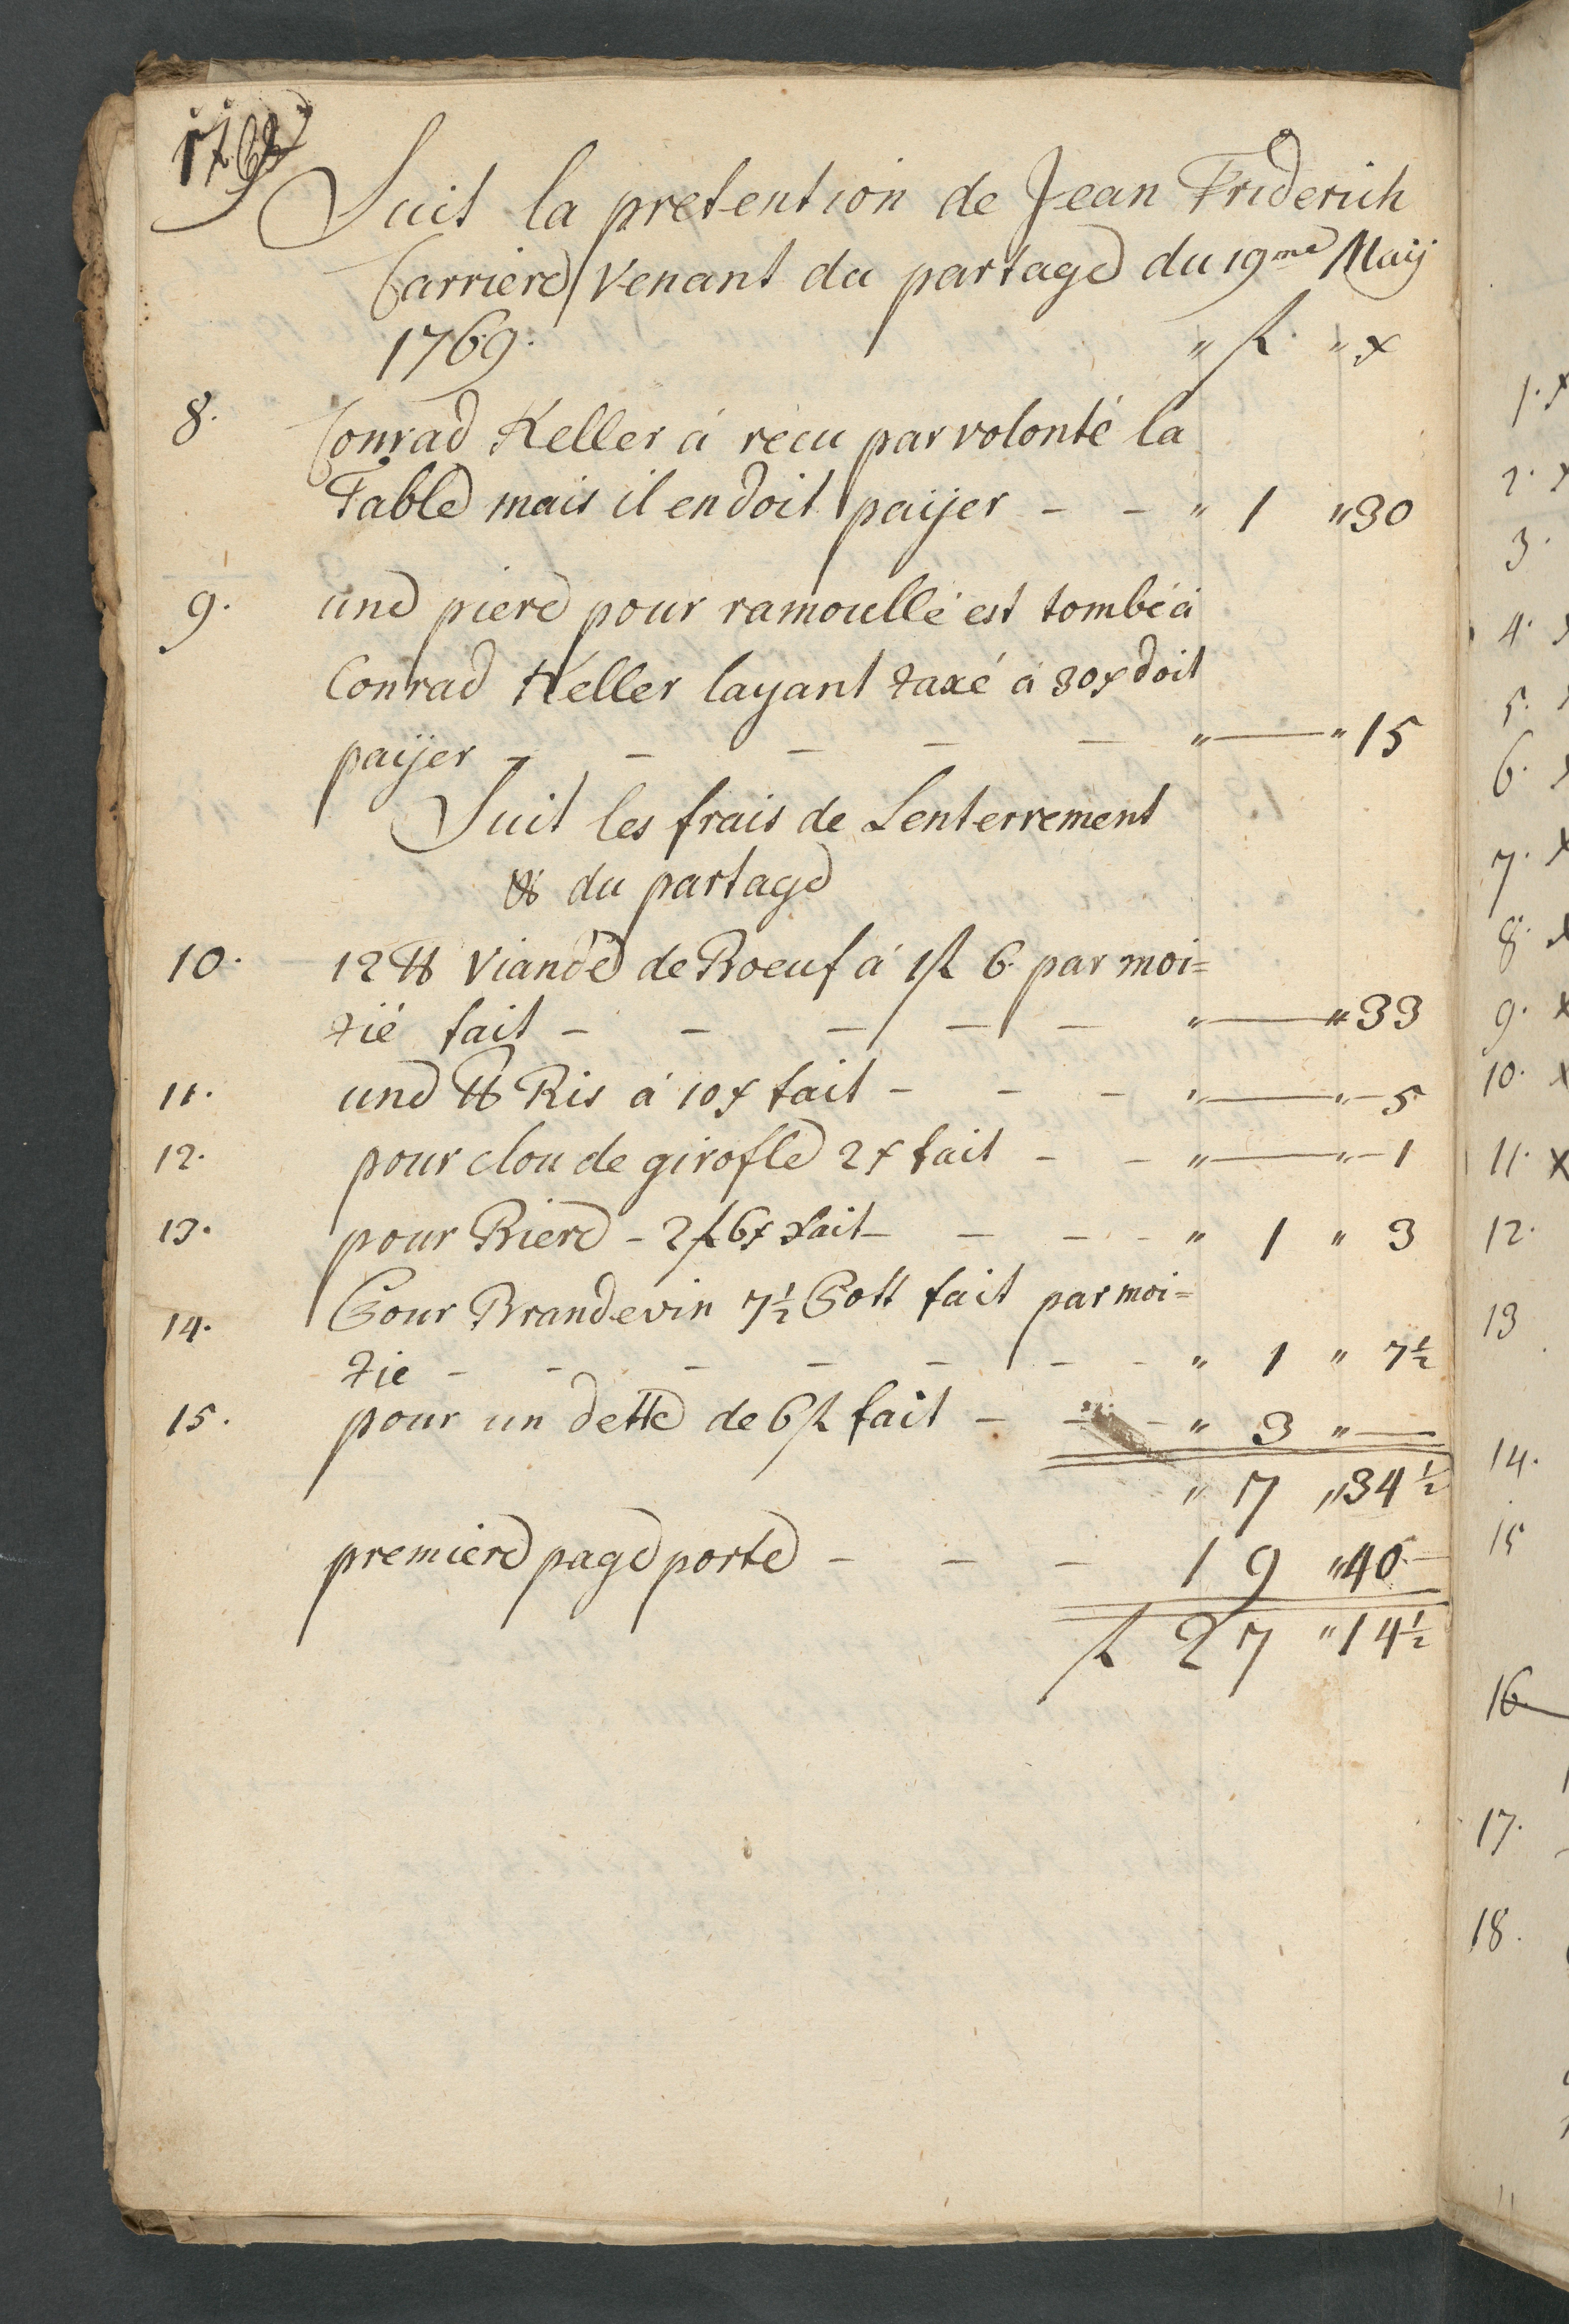 Suit la pretention de Jean Friderich
Carriere / venant du partage du 19me Maÿ
1769. " fl. " x
8. Conrad Keller á recu par volonté la
Table mais il en doit paÿer - - " 1 " 30
9. une piere pour ramoullé est tombé á
Conrad Keller layant taxé á 30x doit
paÿer - - - - - " — " 15
Suit les frais de Lenterrement
& du partage
10. 12 ℔ Viande de Boeuf á 1fl 6. par moi=
tié fait - - - - - " — " 33
11. une ℔ Ris á 10x fait - - - " — " - 5
12. pour clou de girofle 2x fait - - " — " - 1
13. pour Biere - 2fl 6x fait - - - - " 1 " 3
14. Pour Brandevin 7½ Pott fait par moi=
tie - - - - - - - " 1 " 7½
15. pour un dette de 6fl fait - - - " 3 " —
" 7 " 34½
premiere page porte - - - 19 " 40 -
fl 27 " 14½
1. x
2. x
3.
4. x
5.
6. x
7. x
8. x
9. x
10. x
11. x
12.
13
14.
15
16.
17.
18.